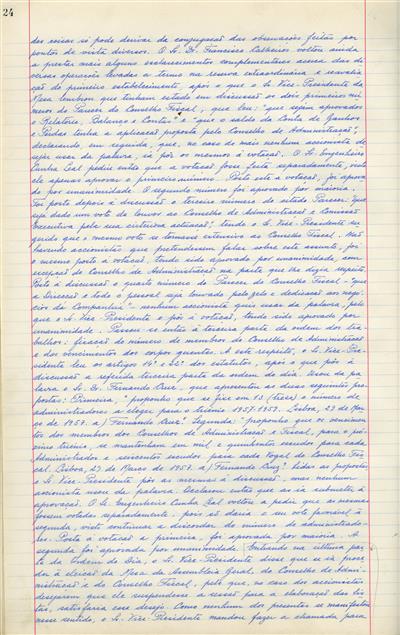 24
das coisas só pode derivar da conjugação das observações feitas por
pontos de vista diversos. O Sr. D. Francisco Calheiros voltou ainda
a prestar mais alguns esclarecimentos complementares acerca das di-
versas operações levadas a termo na reserva extraordinária e reavalia-
ção do primeiro estabelecimento após o que o Sr. Vice-Presidente da
Mesa lembrou que tenham estado em discussão os dois primeiros nú-
meros do Parecer do Conselho Fiscal, que leu: "que sejam aprovados
o Relatório, Balanço e Contas" e "que o saldo da Conta de Ganhos
e Perdas tenha a aplicação proposta pelo Conselho de Administração",
declarando, em seguida, que, no caso de mais nenhum accionista de-
sejar usar da palavra, ia pôr os mesmos à votação. O Sr. Engenheiro
Cunha Leal pediu então que a votação fosse feita separadamente, visto
ele apenas aprovar o primeiro número. Posto este à votação, foi aprova-
do por unanimidade. O segundo número foi aprovado por maioria.
Foi posto depois à discussão o terceiro número do citado Parecer: "que
seja dado um voto de louvor ao Conselho de Administração e Comissão
Executiva pela sua criteriosa actuação", tendo o Sr. Vice-Presidente su-
gerido que o mesmo voto se tornasse extensivo ao Conselho Fiscal. Não
havendo accionistas que pretendessem falar sobre este assunto, foi
o mesmo posto à votação, tendo sido aprovado por unanimidade, com
excepção do Conselho de Administração na parte que lhe dizia respeito.
Posto à discussão o quarto número do Parecer do Conselho Fiscal - "que
a Direcção e todo o pessoal seja louvado pelo zelo e dedicação aos negó-
cios da Companhia" - nenhum accionista quis usar da palavra, pelo
que o Sr. Vice-Presidente o pôs à votação, tendo sido aprovado por
unanimidade. Passou-se então à terceira parte da ordem dos tra-
balhos: fixação do número de membros do Conselho de Administração
e dos vencimentos dos corpos gerentes. A este respeito, o Sr. Vice-Pre-
sidente leu os artigos 14º e 62º dos estatutos, após o que pôs à
discussão a referida terceira parte da ordem do dia. Usou da pa-
lavra o Sr. Dr. Fernando Cruz, que apresentou as duas seguintes pro-
postas: Primeira, "proponho que se fixe em 13 (treze) o número de
administradores a eleger para o triénio 1957-1959. Lisboa, 29 de Mar-
ço de 1957. a) Fernando Cruz". Segunda: "proponho que os vencimen-
tos dos membros dos Conselhos de Administração e Fiscal, para o pró-
ximo triénio, se mantenham em mil e quinhentos escudos para cada
Administrador e seiscentos escudos para cada Vogal do Conselho Fis-
cal. Lisboa, 29 de Março de 1957. a) Fernando Cruz". Lidas as propostas
o Sr. Vice-Presidente pôs as mesmas à discussão, mas nenhum
accionista usou da palavra. Declarou então que as ia submeter à
aprovação. O Sr. Engenheiro Cunha Leal voltou a pedir que as mesmas
fossem votadas separadamente, pois só daria o seu voto favorável à
segunda, visto continuar a discordar do número de administrado-
res. Posta à votação a primeira, foi aprovada por maioria. A
segunda foi aprovada por unanimidade. Entrando na última par-
te da Ordem do Dia, o Sr. Vice-Presidente disse que se ia proce-
der à eleição da Mesa da Assembleia Geral, do Conselho de Admi-
nistração e do Conselho Fiscal, pelo que, no caso dos accionistas
desejarem que ele suspendesse a sessão para a elaboração das lis-
tas, satisfaria esse desejo. Como nenhum dos presentes se manifestou
nesse sentido, o Sr. Vice-Presidente mandou fazer a chamada para